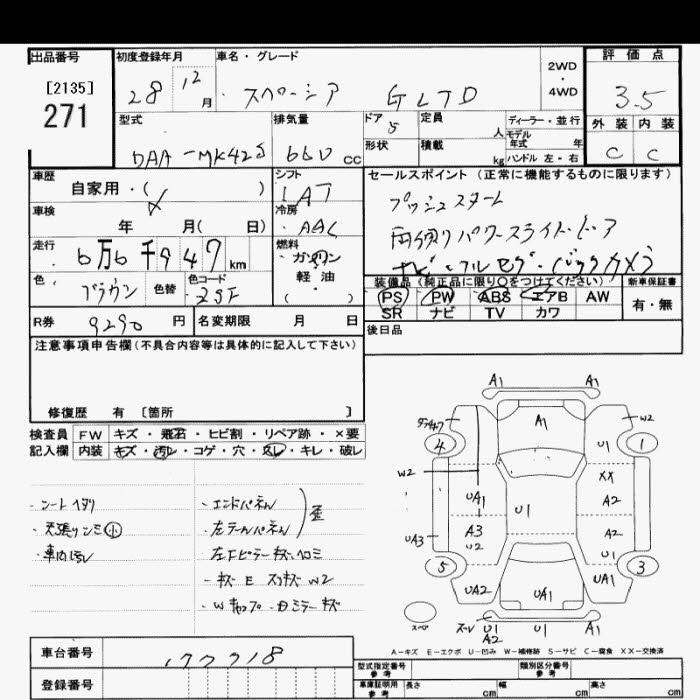 出品番号
[2135]
271
初度登録年月
28 12 月
車名・グレード
スペーシア GLTD
2WD
・
4WD
評価点
3.5
外装 内装
C C
型式
DAA-MK42S
排気量
660 cc
ドア
5
形状
定員
人
積載
kg
ディーラー・並行
モデル
年式 年
ハンドル 左・右
車歴
自家用・( )
シフト
IAT
車検
年 月( 日)
冷房
AAC
走行
6万6千947 km
燃料
ガソリン
・
軽・油
( )
色
ブラウン
色替
色コード
R券
9290 円
名変期限 月 日
セールスポイント(正常に機能するものに限ります)
プッシュスタート
両側パワースライドドア
ナビ・フルセグ・バックカメラ
装備品(純正品に限り○をつけてください)
PS PW ABS エアB AW
SR ナビ TV カワ
新車保証書
有・無
後日品
注意事項申告欄(不具合内容等は具体的に記入して下さい)
修復歴 有 [箇所 ]
検査員 FW キズ・飛石・ヒビ割・リペア跡・×要
記入欄 内装 キズ・汚レ・コゲ・穴・スレ・キレ・破レ
・シートヘタリ
・天張りシミ小
・車内汚レ
・エンドパネル
・左テールパネル
歪
・左Fピラーキズヘコミ
・キズE スリキズW2
・Wキャップ・Dミラーキズ
A1 A1
A1
W2
4
U1
1
W2
XX
UA1
U1
A2
UA3
A3
U2
A2
U1
5
3
UA2
UA1
UA1
スペア
U1
A2
U1
A1
A-キズ E-エクボ U-凹み W-補修跡 S-サビ C-腐食 XX-交換済
車台番号
177718
登録番号
型式指定番号
参考
類別区分番号
参考
車庫証明用
参考
長さ cm
幅 cm
高さ cm